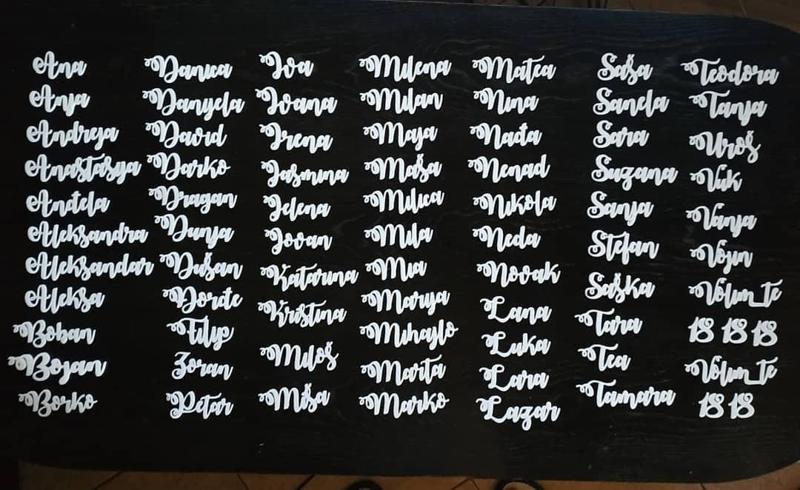 Ana
Anja
Andreja
Anastasija
Anđela
Aleksandra
Aleksandar
Aleksa
Boban
Bojan
Borko
Danica
Danijela
David
Darko
Dragan
Dunja
Dušan
Đorđe
Filip
Zoran
Petar
Iva
Ivana
Irena
Jasmina
Jelena
Jovan
Katarina
Kristina
Miloš
Miša
Milena
Milan
Maja
Maša
Milica
Mila
Mia
Marija
Mihajlo
Marta
Marko
Matea
Nina
Nađa
Nenad
Nikola
Neda
Novak
Lana
Luka
Lara
Lazar
Saša
Sanela
Sara
Suzana
Sanja
Stefan
Saška
Tara
Tea
Tamara
Teodora
Tanja
Uroš
Vuk
Vanja
Vojin
Volim_te
18 18 18
Volim_te
18 18